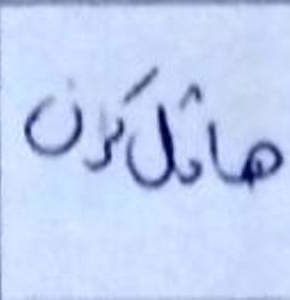 هائل کرن